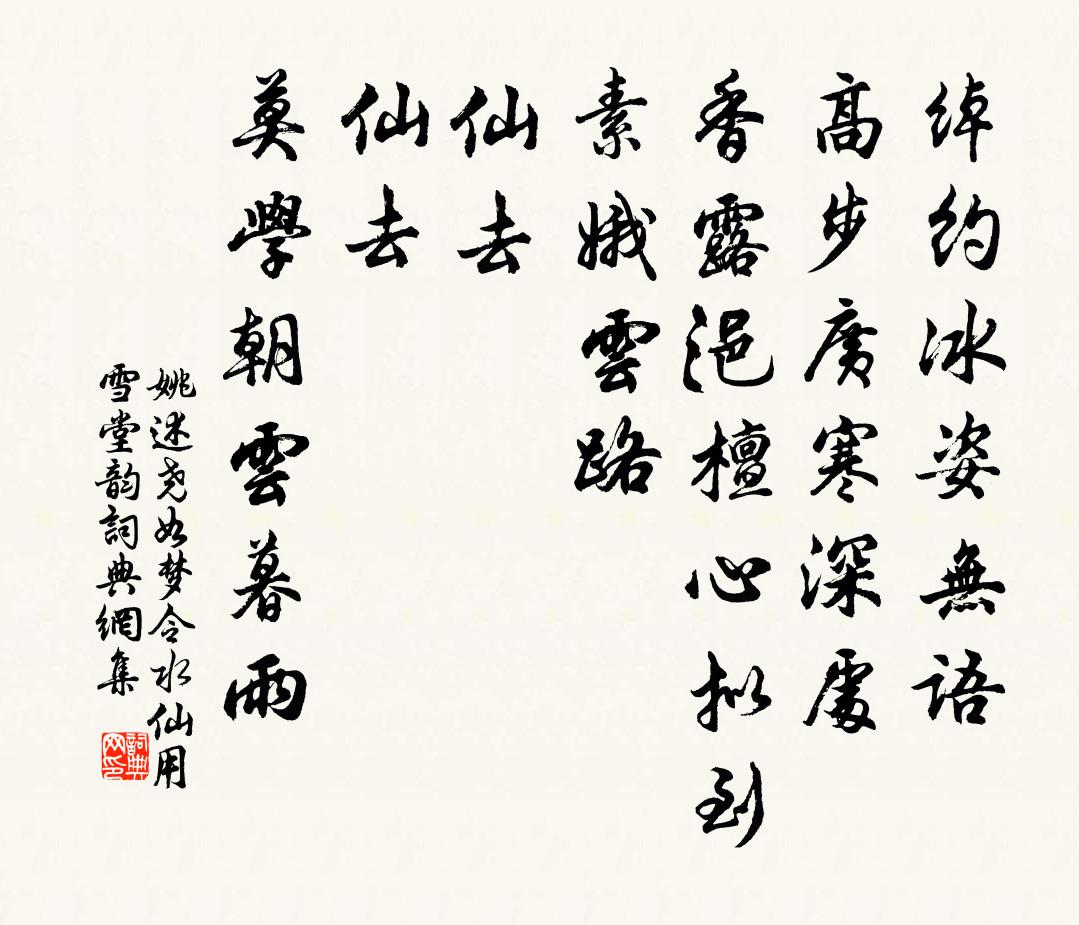 綽約冰姿無語
高步廣寒深處
香露浥檀心拟到
素娥雲路
仙去
仙去
莫學朝雲暮雨
姚述尧如梦令水仙用
雪堂韵詞典網集
詞典网印